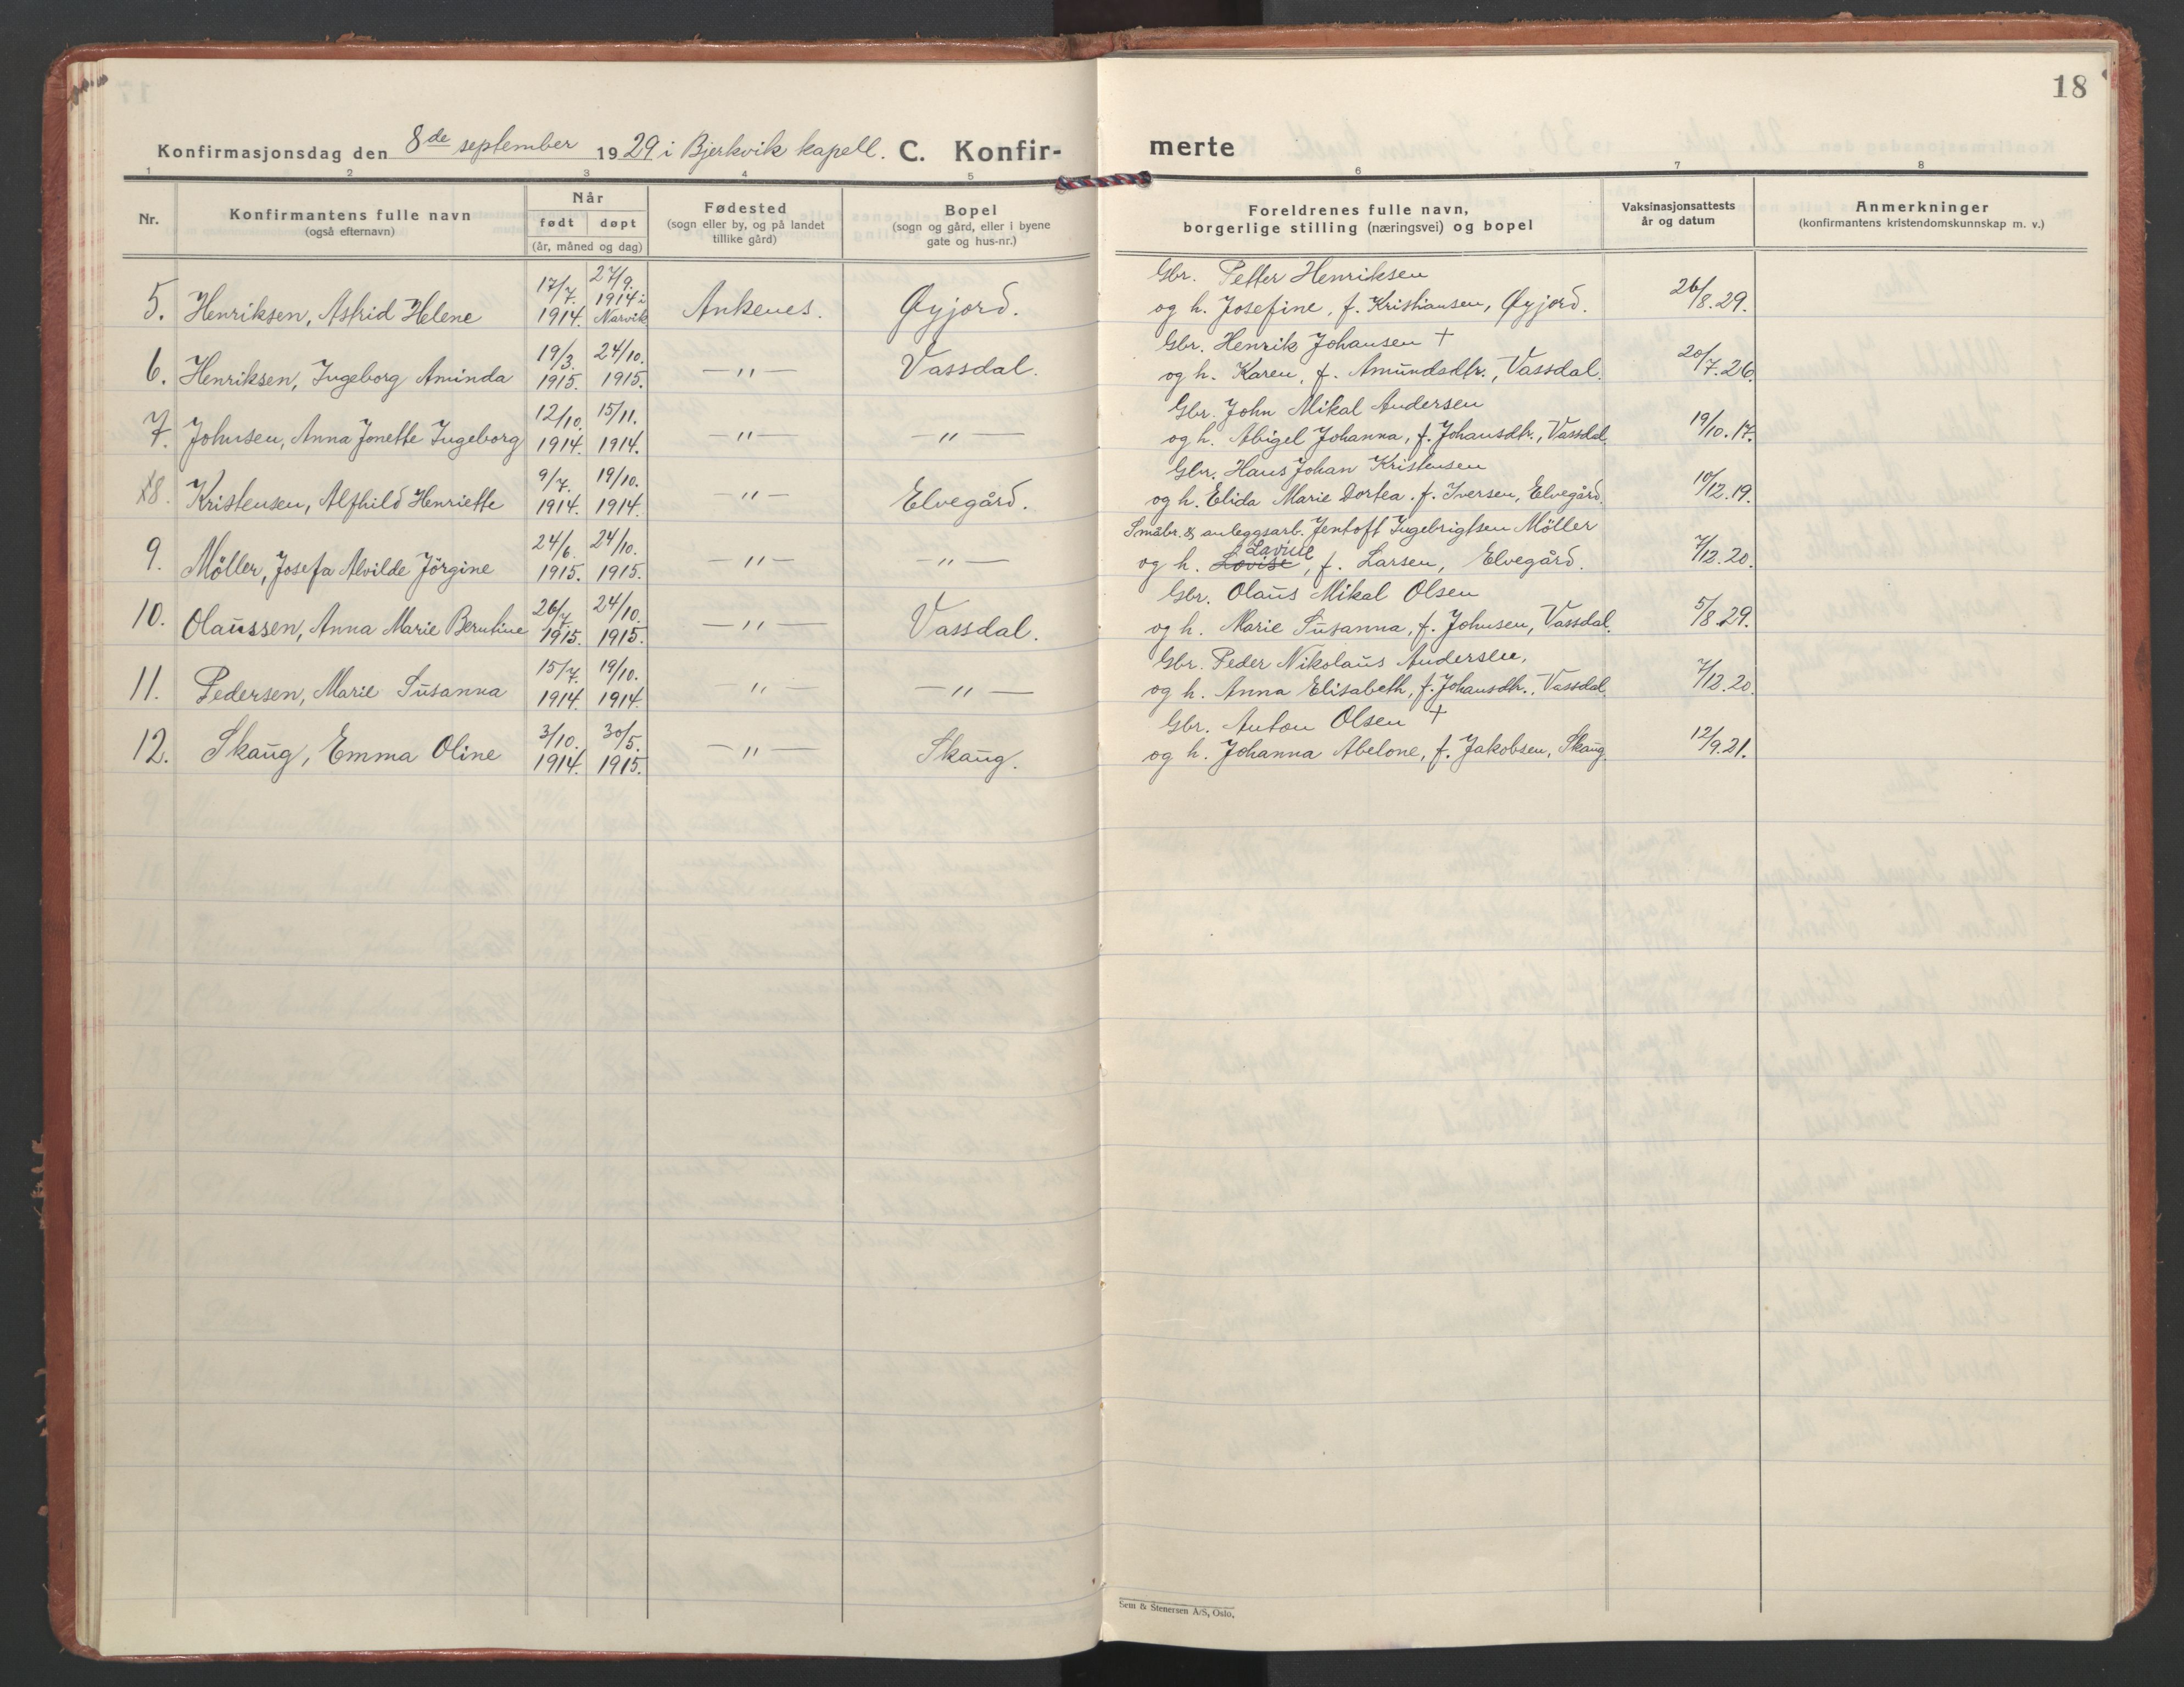 18
Konfirmasjonsdag den 8de september 1929 i Bjerkvik kapell. C. Konfirmerte
1 2 3 4 5 6 7 8
Nr.
Konfirmantens fulle navn
(også efternavn)
Når
født døpt
(år, måned og dag)
Fødested
(sogn eller by, og på landet
tillike gård)
Bopel
(sogn og gård, eller i byene
gate og hus-nr.)
Foreldrenes fulle navn,
borgerlige stilling (næringsvei) og bopel
Vaksinasjonsattests
år og datum
Anmerkninger
(konfirmantens kristendomskunnskap m. v.)
17/7. 27/9. Gbr. Petter Henriksen
1914 i
5. Henriksen, Astrid Helene 1914. Narvik Ankenes. Øyjord. og h. Josefine, f. Kristiansen, Øyjord. 26/8.29.
19/3. 24/10. Gbr. Henrik Johansen +
6. Henriksen, Ingeborg Aminda 1915. 1915. —"— Vassdal. og h. Karen, f. Amundsdtr., Vassdal. 20/7.26.
12/10. 15/11. Gbr. John Mikal Andersen
7. Johnsen, Anna Jonette Ingeborg 1914. 1914. —"— —"— og h. Abigel Johanna, f. Johansdtr., Vassdal. 19/10.17.
9/7. 19/10. Gbr. Hans Johan Kristensen
8. Kristensen, Alfhild Henriette 1914. 1914. —"— Elvegård. og h. Elida Marie Dortea. f. Iversen, Elvegård. 10/12.19.
24/6. 24/10. Småbr. & anleggsarb. Jentoft Ingebrigtsen Möller
Lavise
9. Möller, Josefa Alvilde Jörgine 1915. 1915. —"— —"— og h. Lovise, f. Larsen, Elvegård. 7/12.20.
26/7. 24/10. Gbr. Olaus Mikal Olsen
10. Olaussen, Anna Marie Berntine 1915. 1915. —"— Vassdal. og h. Marie Susanna, f. Johnsen, Vassdal. 5/8.29.
15/7. 19/10. Gbr. Peder Nikolaus Andersen,
11. Pedersen, Marie Susanna 1914. 1914. —"— —"— og h. Anna Elisabeth, f. Johansdtr., Vassdal. 7/12.20.
3/10. 30/5. Gbr. Anton Olsen +
12. Skaug, Emma Oline 1914. 1915. —"— Skaug. og h. Johanna Abelone, f. Jakobsen, Skaug. 12/9.21.
Sem & Stenersen A/S, Oslo,